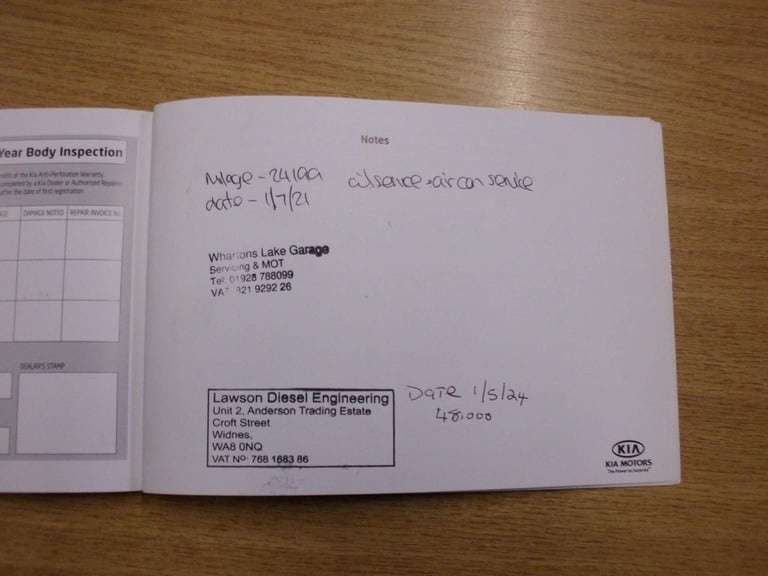 Year Body Inspection
Benefit of the Kia Anti-Perforation Warranty
completed by a Kia Dealer or Authorised Repairer
after the date of first registration
DAMAGE NOTED
REPAIR INVOICE No.
DEALAR'S STAMP
Notes
oil service + air con service
date - 1/7/21
Whartons Lake Garage
Servicing & MOT
Tel: 01928 788099
VAT 821 9292 26
Lawson Diesel Engineering
Unit 2, Anderson Trading Estate
Croft Street
Widnes,
WA8 0NQ
VAT No. 768 1683 86
DATE 1/5/24
48,000
KIA
KIA MOTORS
The Power to Surprise